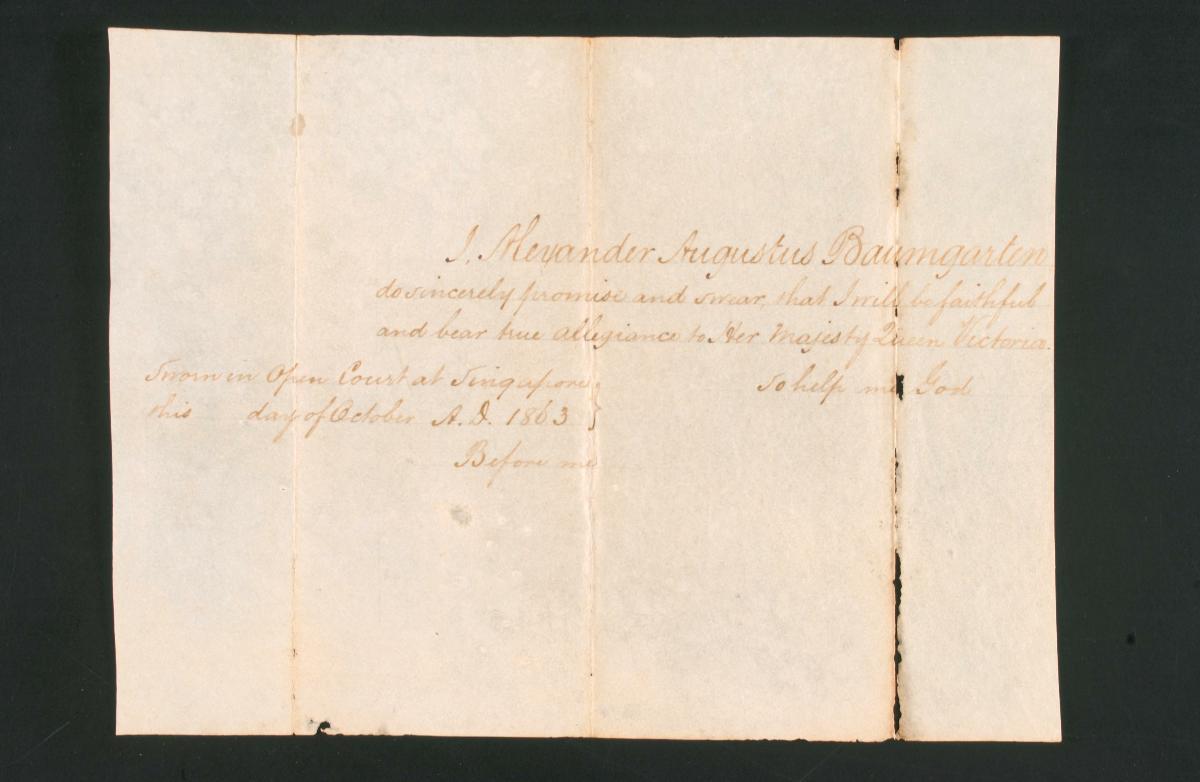 I, Alexander Augustus Baumgarten
do sincerely promise and swear, that I will be faithful
and bear true allegiance to Her Majesty Queen Victoria.
So help me God
Sworn in Open Court at Singapore
this day of October A.D. 1863 }
Before me